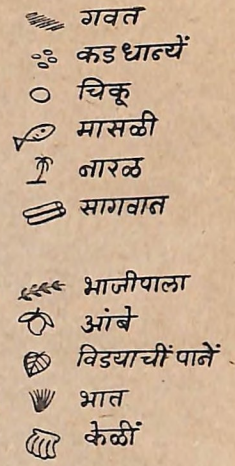 गवत
कडधान्यें
चिकू
मासळी
नारळ
सागवान
भाजीपाला
आंबे
विडयाचीं पानें
भात
केळीं